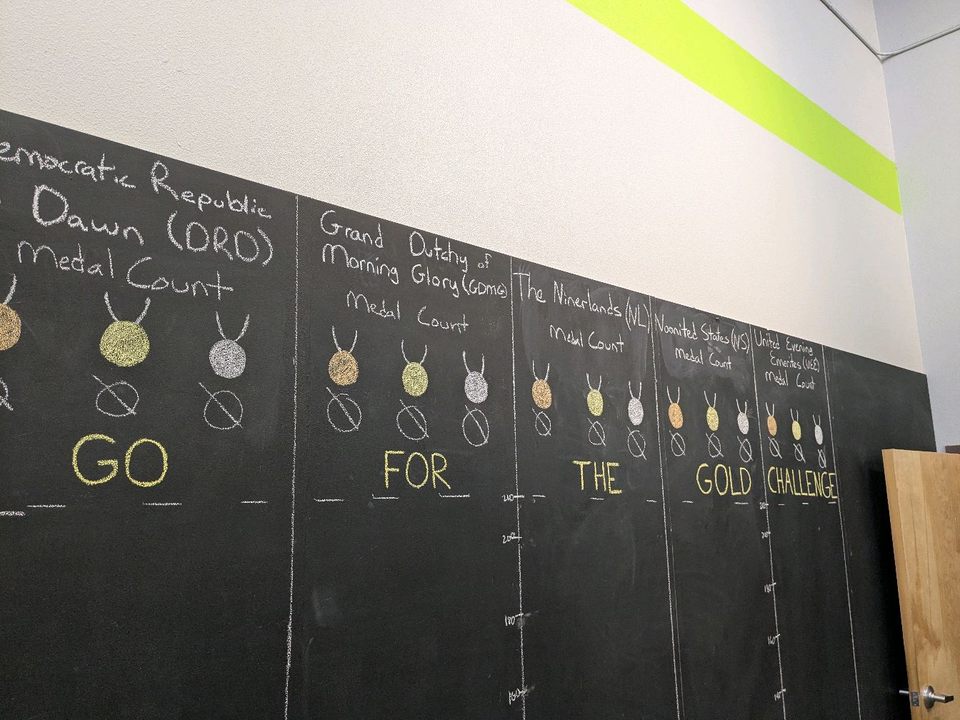 emocratic Republic
Dawn (DRD)
Medal Count
Ø Ø
GO
Grand Dutchy of
Morning Glory (GDMG)
Medal Count
Ø Ø Ø
FOR
The Ninerlands (NL)
Medal Count
Ø Ø Ø
THE
240
200
180
160
Noonited States (NS)
Medal Count
Ø Ø Ø
GOLD
United Evening
Emerites (UEE)
Medal Count
Ø Ø Ø
CHALLENGE
180
160